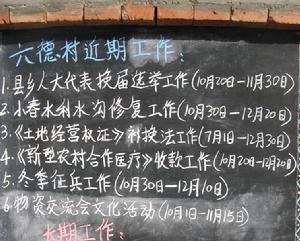 六德村近期工作：
1.县乡人大代表换届选举工作(10月20日一11月30日)
2.小春水利水沟修复工作(10月30日一12月20日)
3.《土地经营权证》补换法工作(7月1日一12月30日)
4.《新型农村合作医疗》收款工作(10月20日一12月20日)
5.冬季征兵工作(10月30日一12月10日)
6.物资交流会文化活动(10月1日一11月15日)
长期工作：